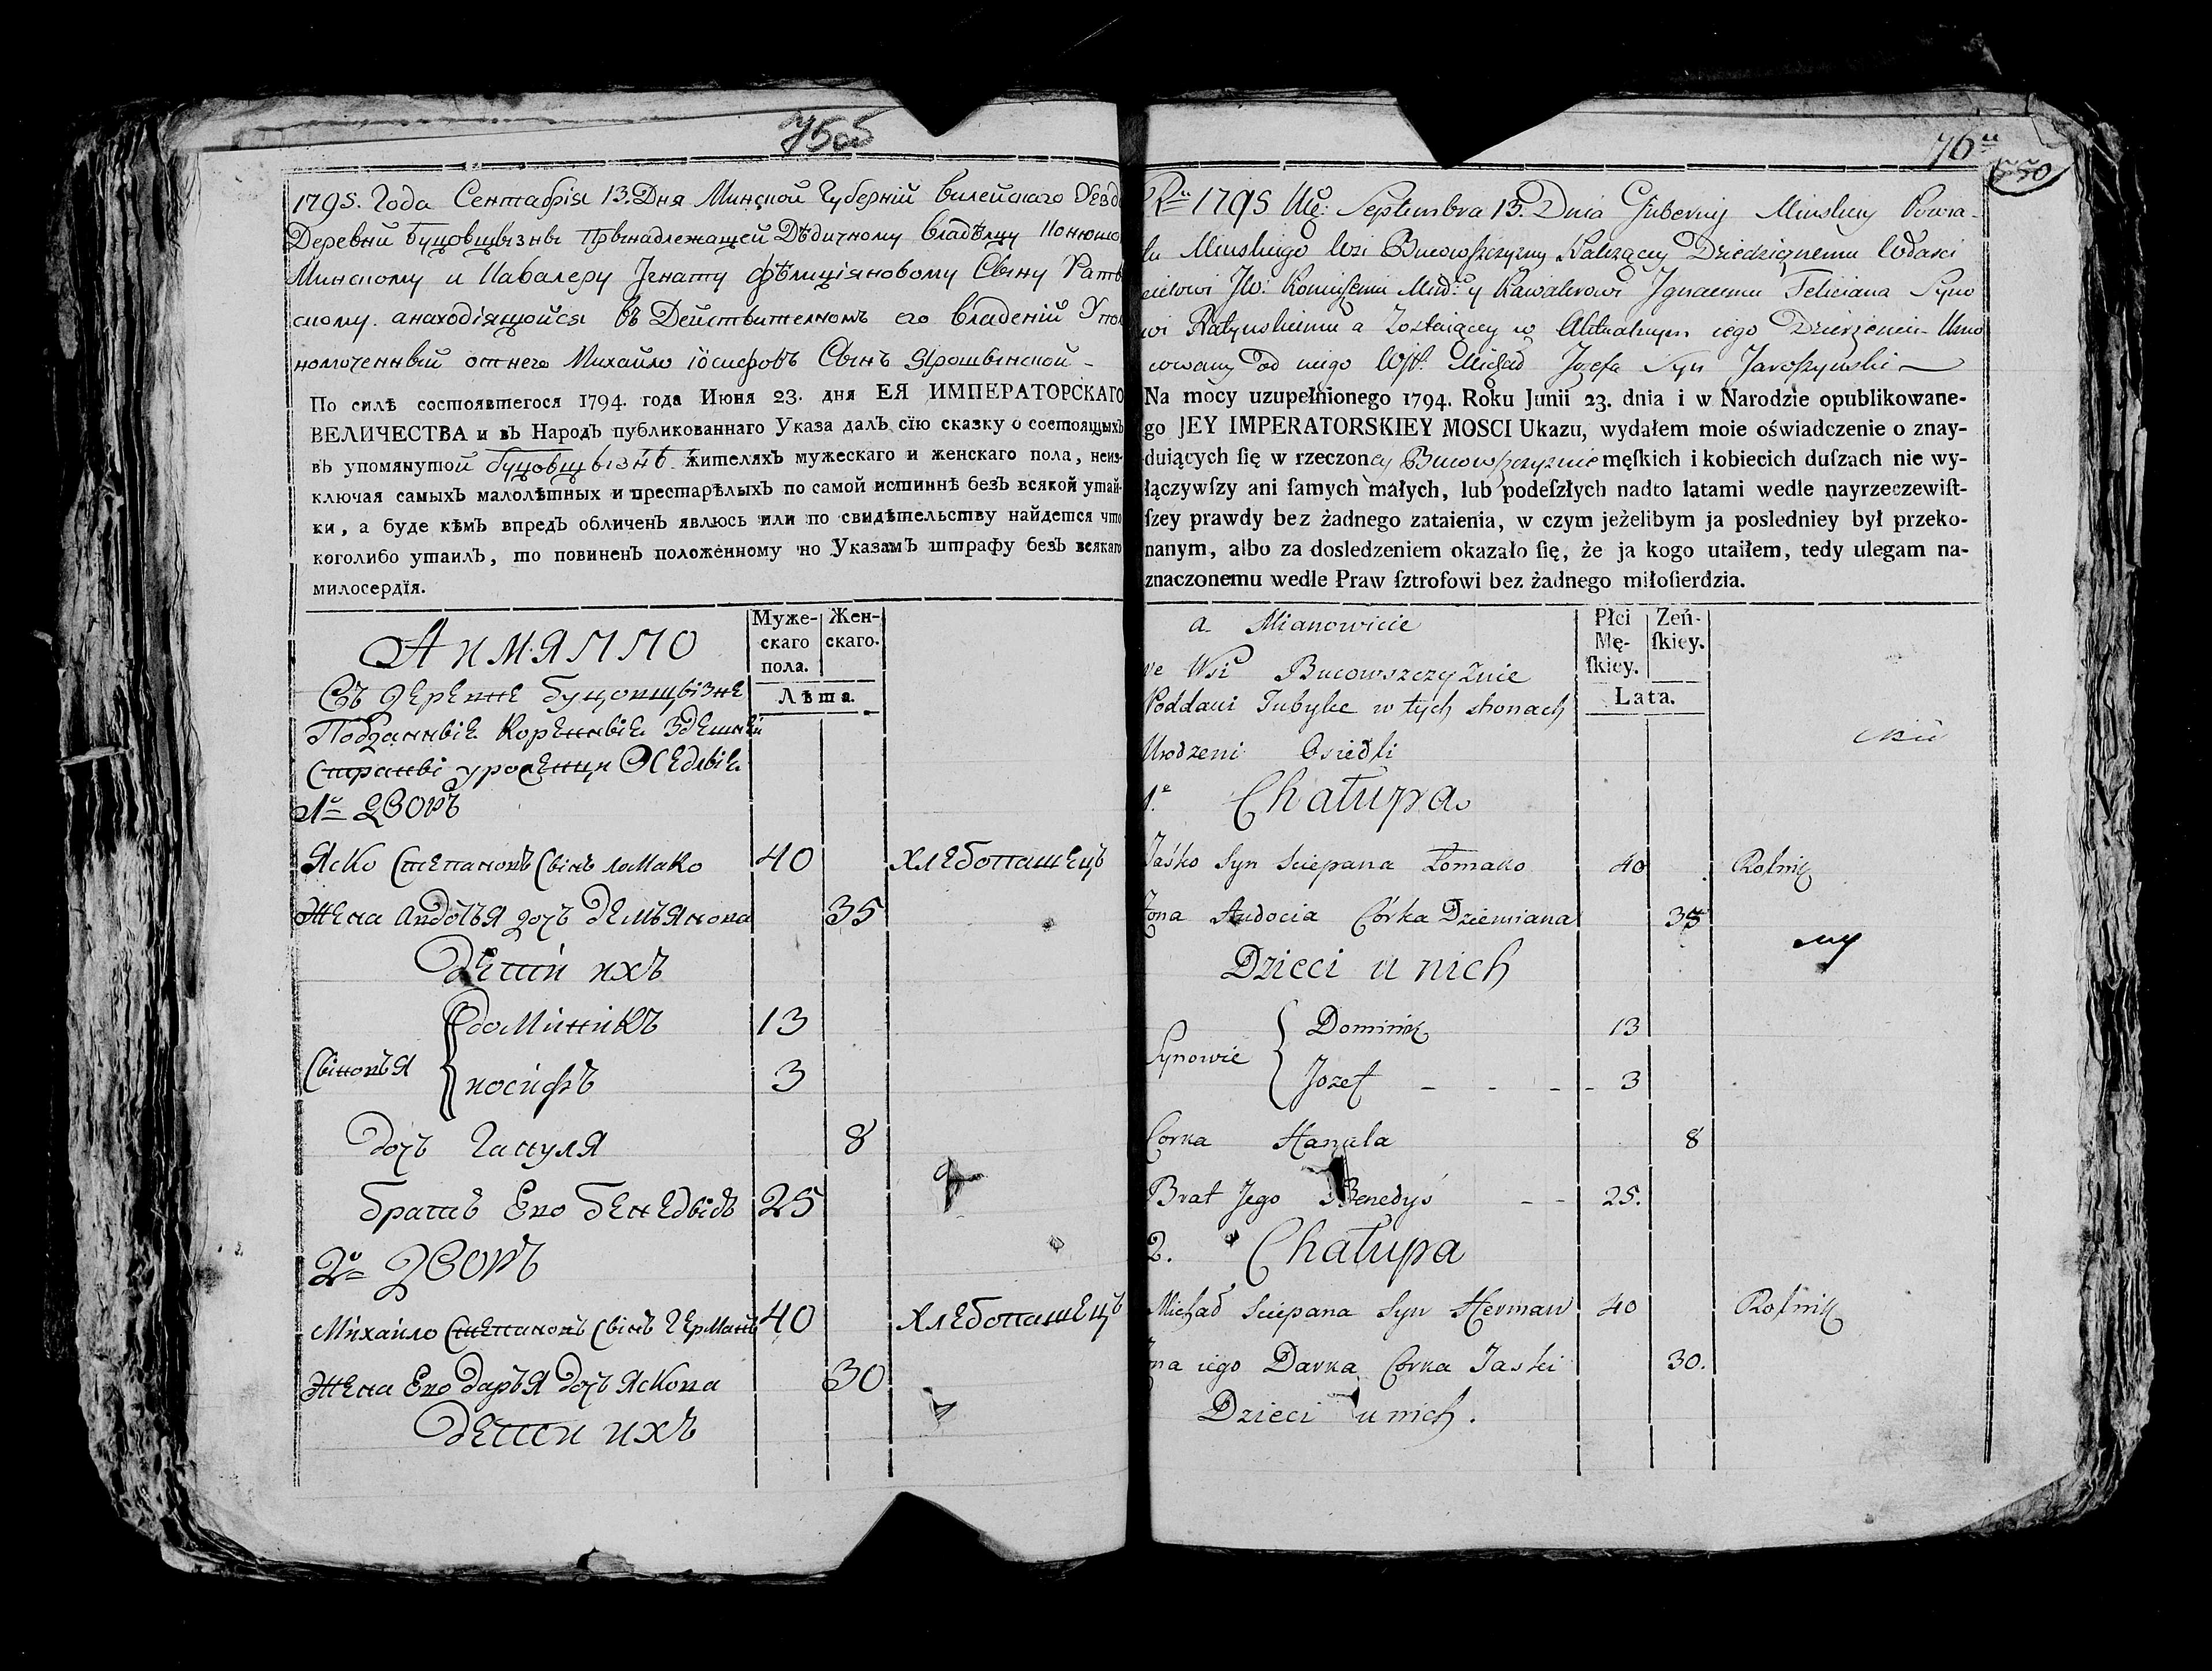 75об
1795. Года Сентебрія 13. Дня Минской Губерній вилейскаго Уезд
Деревни Буцовщызны Прынадлежащей Дѣдичному владѣлцу Конюшо
Минскому и Кавалеру Јгнату Фѣлиціяновому Сыну Раты
скому. а находіящойся въ Действителномъ его владеній Упол
номоченный отнего Михайло Іосифовъ Сынъ Ярошынской –
По силѣ состоявтегося 1794. года Июня 23. дня ЕЯ ИМПЕРАТОРСКАГО
ВЕЛИЧЕСТВА и въ Народъ публикованнаго Указа далъ сїю сказку о состоящыхъ
въ упомянутой Буцовщызнѣ жителяхъ мужескаго и женскаго пола, неиз-
ключая самыхъ малолѣтныхъ и престарѣлыхъ по самой истиннѣ безъ всякой утай-
ки, а буде кѣмъ впредъ обличенъ явлюсь или по свидѣтельству найдется что
коголибо утаилъ, то повиненъ положенному по Указамъ штрафу безъ всякаго
милосердїя.
Муже-скаго пола. Жен-скаго.
Лѣта.
А ИМЯННО
Въ деревне Буцовщызне
Подданные коренные здешней
Страны уроженцы Оседлые
1о дворъ
Яско Степановъ Сынъ ломако 40 хлебопашецъ
Жена Авдотья дочь демьянова 35
дети ихъ
Сыновья
доминикъ 13
иосифъ 3
дочъ Гануля 8
братъ Его бенедыдъ 25
2о дворъ
Михайло Степановъ Сынъ Германъ 40 хлебопашецъ
Жена Его дарья дочъ яскова 30
дети ихъ
76
550
Ru 1795 Mc: Septembra 13. Dnia Gubernij Minskiey Powia-
tu Minskiego Wsi Bucowszczyzny Należącey Dziedzicznemu Władaci
Jgnacemu Feliciana Syno
wi Ratynskiemu a Zostaiącey w Aktualnym iego Dzierżeniu Umo
cowany od niego Michał Jozefa Syn Jaroszynski
Na mocy uzupełnionego 1794. Roku Junii 23. dnia i w Narodzie opublikowane-
go JEY IMPERATORSKIEY MOSCI Ukazu, wydałem moie oświadczenie o znay-
duiących ſię w rzeczoney Bucowszczyznie męſkich i kobiecich duſzach nie wy-
łączywſzy ani ſamych małych, lub podeſzłych nadto latami wedle nayrzeczewiſt-
ſzey prawdy bez żadnego zataienia, w czym jeżelibym ja posledniey był przeko-
nanym, albo za dosledzeniem okazało ſię, że ja kogo utaiłem, tedy ulegam na-
znaczonemu wedle Praw ſztrofowi bez żadnego miłoſierdzia.
Płci Mę-ſkiey. Zeń-ſkiey.
Lata.
a Mianowicie
we Wsi Bucowszczyznie
Poddani Tubylce w tych stronach
Urodzeni Osiedli
1.o Chałupa
Jaśko Syn Sciepana Łomako 40 Rolnik
Zona Audocia Córka Dziemiana 35
Dzieci u nich
Synowie
Dominik 13
Jozef – – – 3
Corka Hanula 8
Brat Jego Benedyś – – 25.
2. Chałupa
Michał Sciepana Syn Herman 40 Rolnik
Zona iego Darka Corka Jaski 30.
Dzieci u nich.